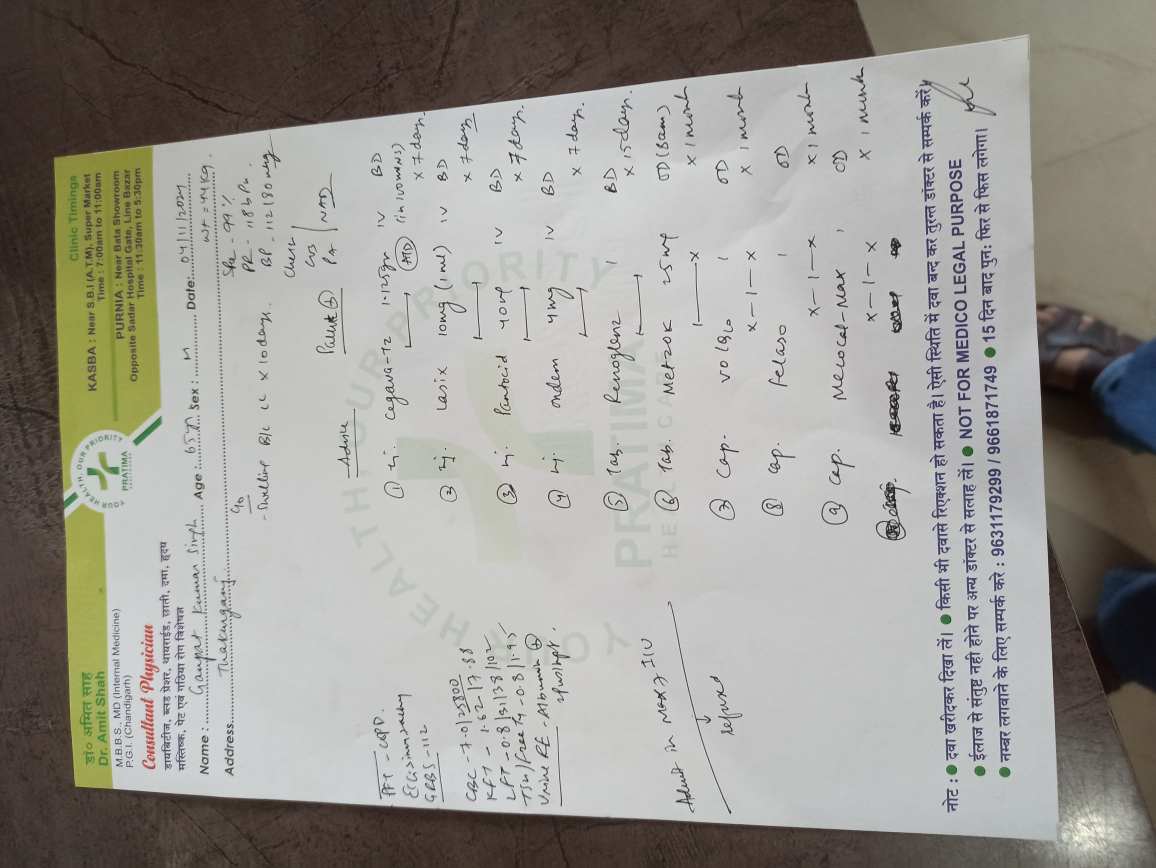 डॉ० अमित साह
Dr. Amit Shah
M.B.B.S., MD (Internal Medicine)
P.G.I. (Chandigarh)
Consultant Physician
डायबिटीज, ब्लड प्रेशर, थायराईड, छाती, दमा, हृदय
मस्तिष्क, पेट एवं गठिया रोग विशेषज्ञ
YOUR HEALTH, OUR PRIORITY
PRATIMA
Clinic Timings
KASBA : Near S.B.I (A.T.M), Super Market
Time : 7:00am to 11:00am
PURNIA : Near Bata Showroom
Opposite Sadar Hospital Gate, Line Bazar
Time : 11:30am to 5:30pm
Name : Ganpat Kumar Singh Age : 65y Sex : M Date: 04/11/2024
Address Thakurganj wt = 44 kg.
- Swelling B/L LL x 10 days.
- 99 %
PR - 118 b/m.
BP - 112/80 mmHg
Chest
CVS
PA NAD
Advice
PFT - COPD.
GRBS - 112
CBC - 7.0/25800
KFT - 1.62/7.88
LFT - 0.8/31/38/102
TSH/Free T4 - 0.8/1.95
Urine RE - Albumin
① inj. 1.125gm IV BD
(in 100ml NS) x 7 days.
② inj. Lasix 10mg (1ml) IV BD
x 7 days
③ inj. Pantocid 40mg IV BD
x 7 days.
④ inj. ondem 4mg IV BD
x 7 days.
⑤ Tab. 1 BD
x 15 days.
⑥ Tab. Metzok 25mg OD (8am)
1 x x 1 month
⑦ Cap. 1 OD
x - 1 - x x 1 month
⑧ Cap. 1 OD
x - 1 - x x 1 month
⑨ Cap. Mecocal-Max 1 OD
x - 1 - x x 1 month
Admit in Max 7 ICU
↓
refused
YOUR HEALTH OUR PRIORITY
PRATIMA
HEALTH CARE
नोट : ● दवा खरीदकर दिखा लें। ● किसी भी दवासे रिएक्शन हो सकता है। ऐसी स्थिति में दवा बन्द कर तुरन्त डॉक्टर से सम्पर्क करें।
● ईलाज से संतुष्ट नही होने पर अन्य डॉक्टर से सलाह लें। ● NOT FOR MEDICO LEGAL PURPOSE
● नम्बर लगवाने के लिए सम्पर्क करे : 9631179299 / 9661871749 ● 15 दिन बाद पुन: फिर से फिस लगेगा।